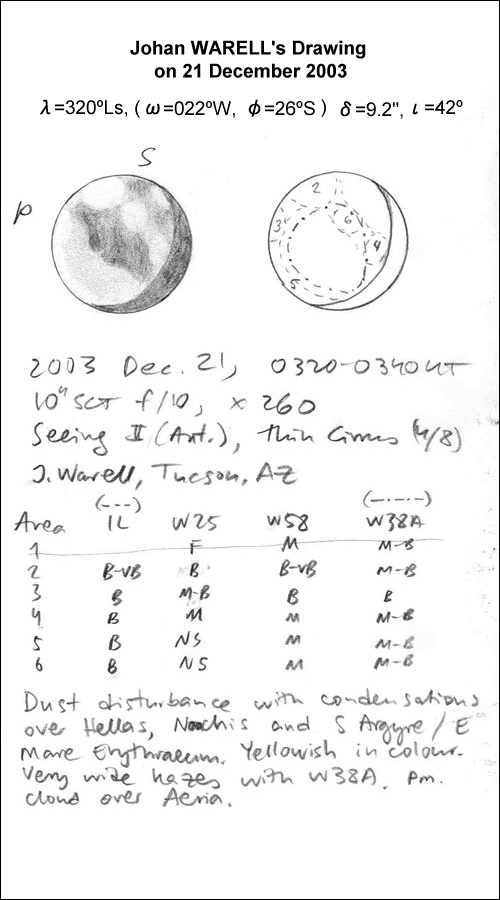 Johan WARELL's Drawing
on 21 December 2003
λ=320ºLs, (ω=022ºW, ϕ=26ºS) δ=9.2", ι=42º
S
P
2
3
6
4
5
2003 Dec. 21, 0320-0340 UT
10" SCT f/10, x 260
Seeing II (Ant.), thin Cirrus (4/8)
J. Warell, Tucson, AZ
(---) (-.-.-)
Area IL W25 W58 W38A
1 F M M-B
2 B-VB B B-VB M-B
3 B M-B B B
4 B M M M-B
5 B NS M M-B
6 B NS M M-B
Dust disturbance with condensations
over Hellas, Noachis and S Argyre/E
Mare Erythraeum. Yellowish in colour.
Very wide hazes with W38A. Pm.
cloud over Aeria.